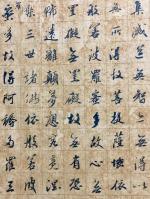 集滅道無智亦無得以
無所得故菩提薩埵依
般若波羅蜜多故心無
罣礙無罣礙故無有恐
遠離顛倒夢想究竟涅
槃三世諸佛依般若波
蜜多故得阿耨多羅三